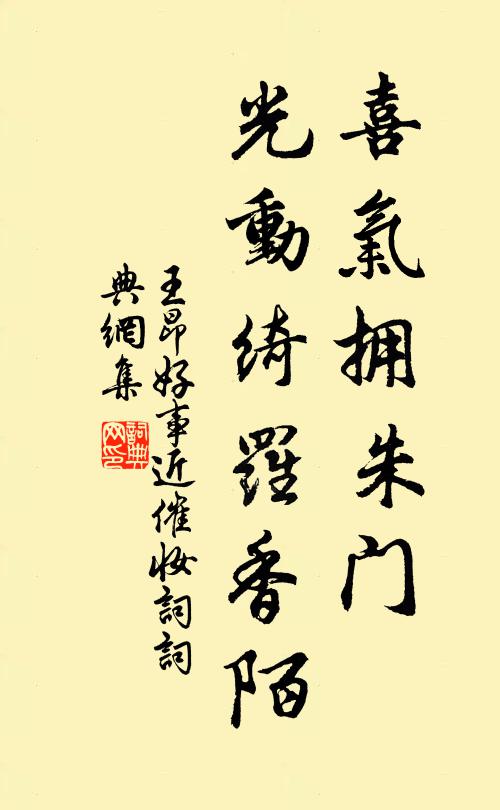 喜氣拥朱门
光動绮羅香陌
王昂好事近催妆詞詞
典網集
詞典网印